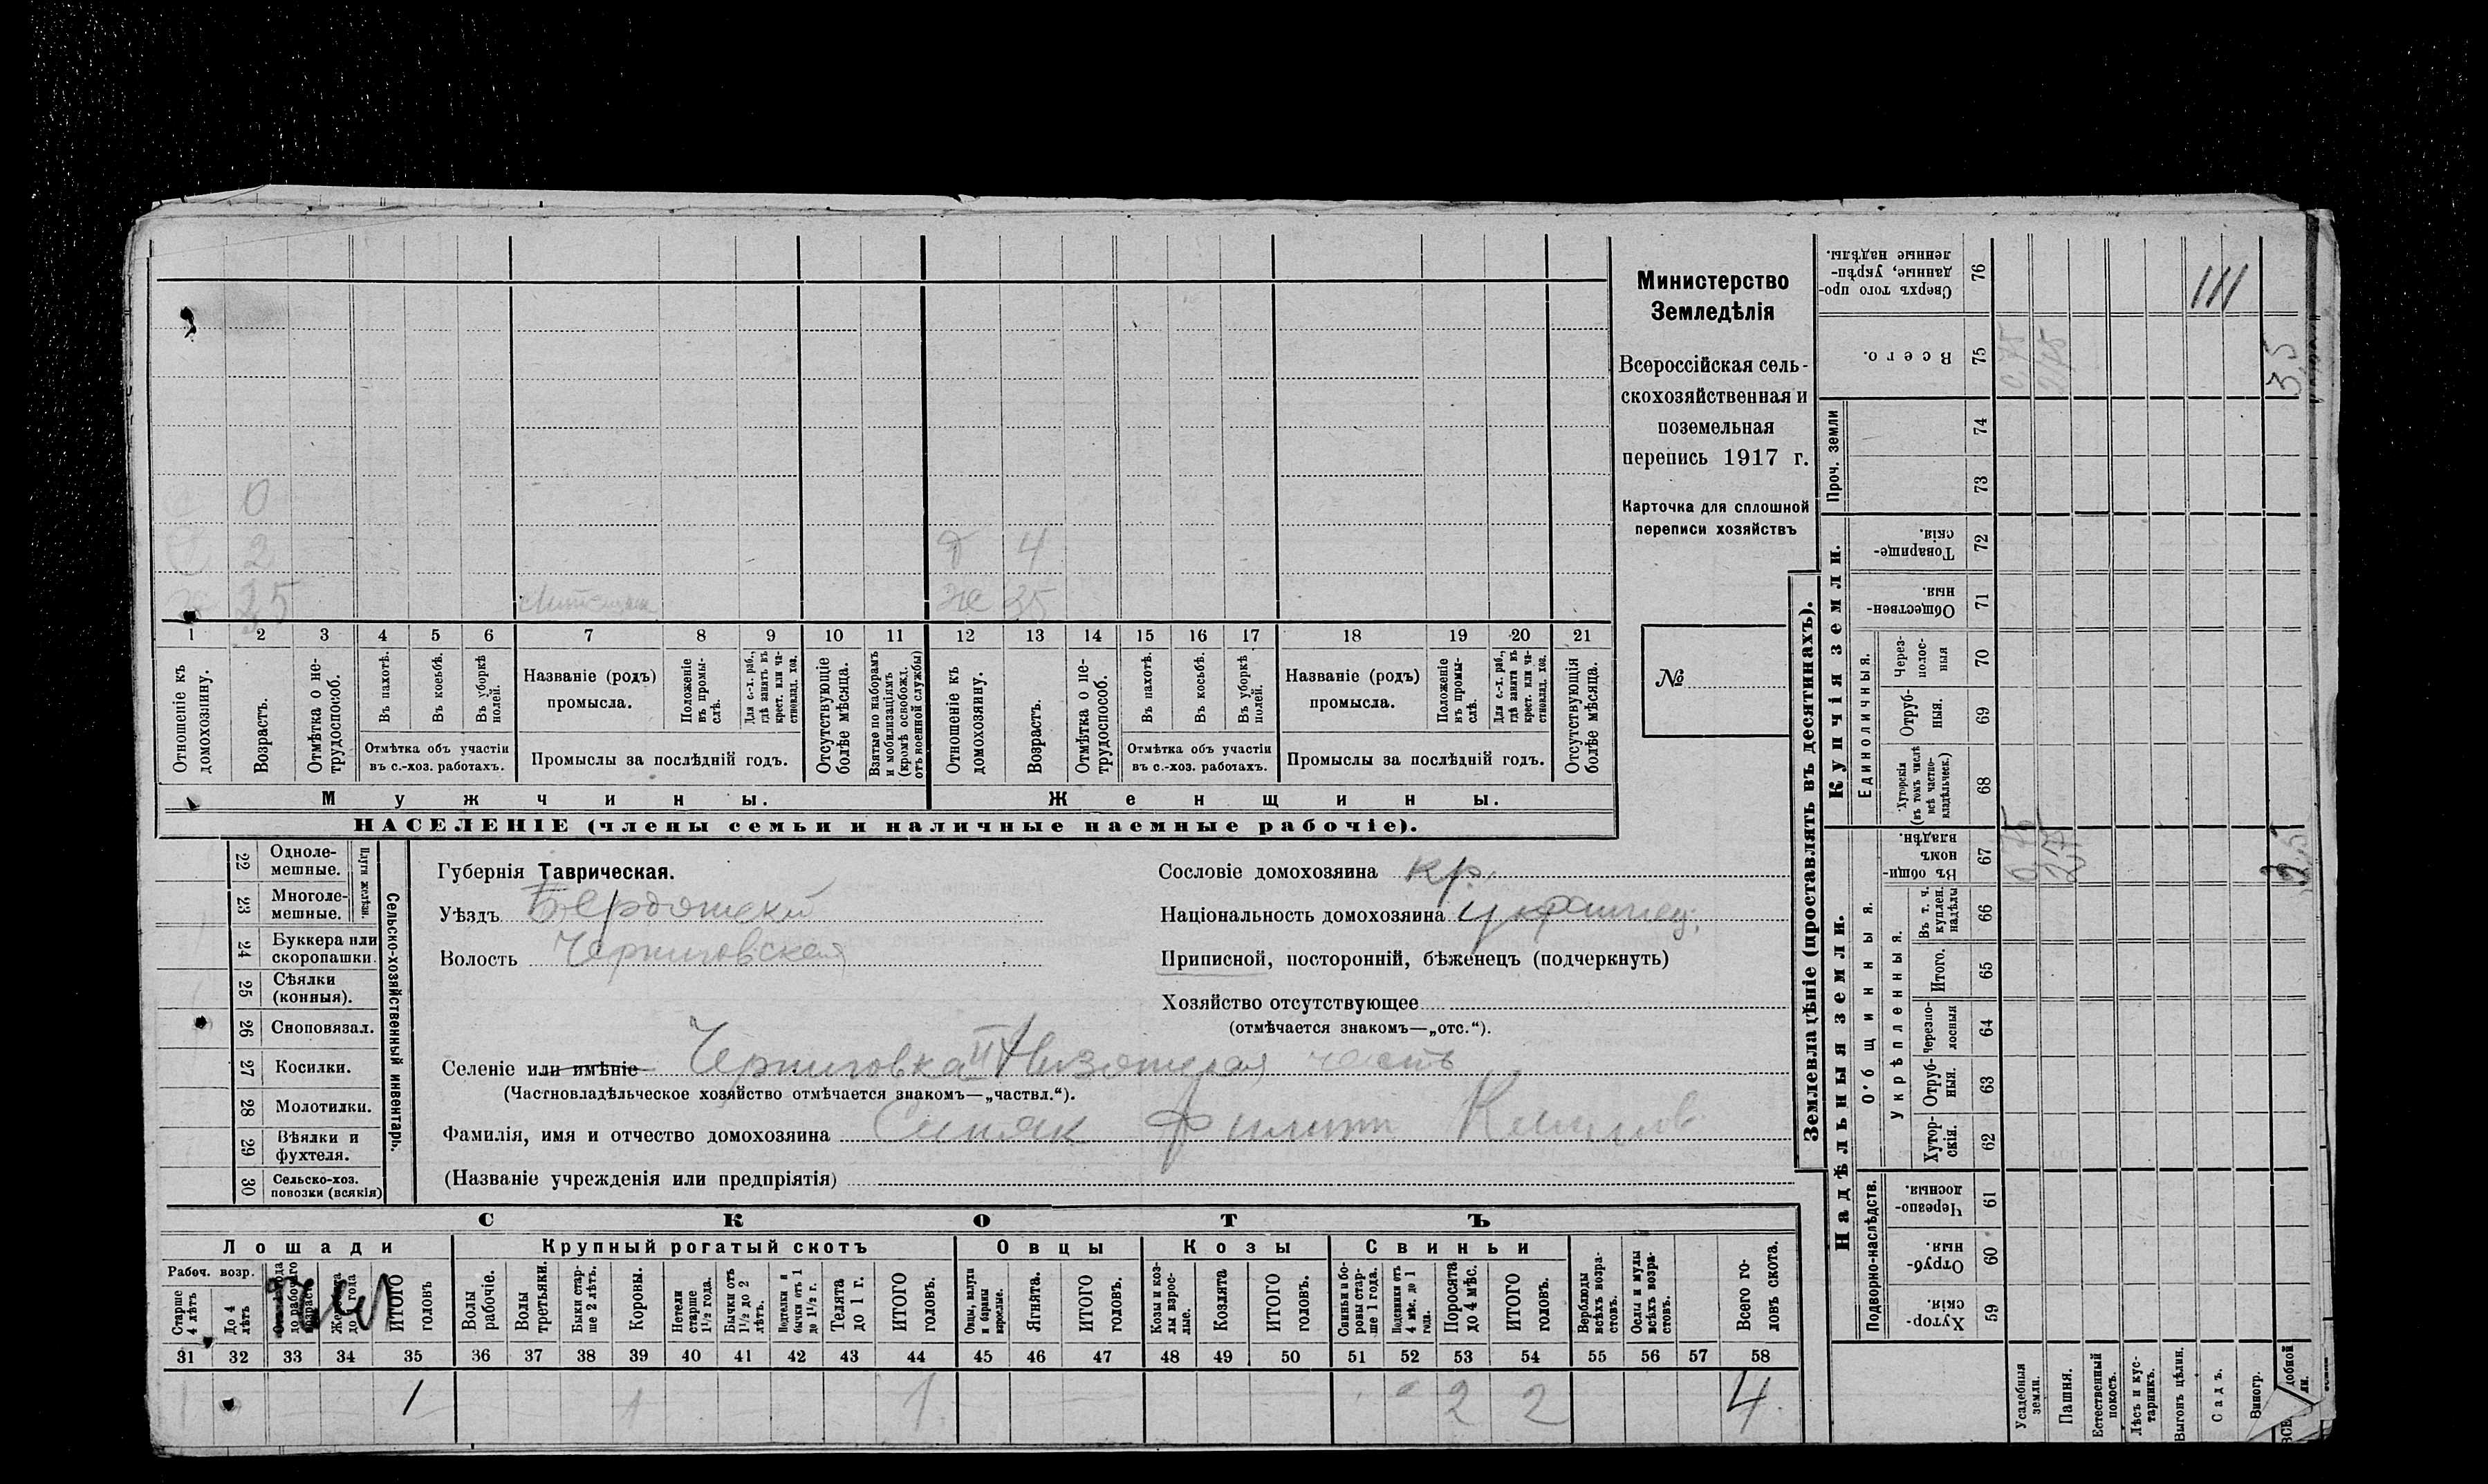 Министерство
Земледѣлія
Всероссійская сель-
скохозяйственная и
поземельная
перепись 1917 г.
Карточка для сплошной
переписи хозяйствъ
№
0
2 Д 4
35 Ж 35
1 2 3 4 5 6 7 8 9 10 11 12 13 14 15 16 17 18 19 20 21
Отношеніе къ домохозяину.
Возрастъ.
Отмѣтка о не-трудоспособ.
Въ пахотѣ.
Въ косьбѣ.
Въ уборкѣ полей.
Отмѣтка объ участіи
въ с.-хоз. работахъ.
Названіе (родъ)
промысла.
Положеніе въ промы-слѣ.
Для с.-х. раб., гдѣ занятъ въ крест. или ча-стновлад. хоз.
Промыслы за послѣдній годъ.
Отсутствующіе болѣе мѣсяца.
Взятые по наборамъ и мобилизаціямъ (кромѣ освобожд. отъ военной службы)
Отношеніе къ домохозяину.
Возрастъ.
Отмѣтка о не-трудоспособ.
Въ пахотѣ.
Въ косьбѣ.
Въ уборкѣ полей.
Отмѣтка объ участіи
въ с.-хоз. работахъ.
Названіе (родъ)
промысла.
Положеніе въ промы-слѣ.
Для с.-х. раб., гдѣ занята въ крест. или ча-стновлад. хоз.
Промыслы за послѣдній годъ.
Отсутствующія болѣе мѣсяца.
Мужчины.
Женщины.
НАСЕЛЕНІЕ (члены семьи и наличные наемные рабочіе).
22 Одноле-мешные.
23 Многоле-мешные.
Плуги желѣзн.
24 Буккера или скоропашки.
25 Сѣялки (конныя).
26 Сноповязал.
27 Косилки.
28 Молотилки.
29 Вѣялки и фухтеля.
30 Сельско-хоз. повозки (всякія)
Сельско-хозяйственный инвентарь.
Губернія Таврическая.
Уѣздъ Бердянскій
Волость Черниговская
Сословіе домохозяина кр.
Національность домохозяина украинец.
Приписной, посторонній, бѣженецъ (подчеркнуть)
Хозяйство отсутствующее
(отмѣчается знакомъ—„отс.“).
Селеніе или имѣніе Черниговка II Низянская часть
(Частновладѣльческое хозяйство отмѣчается знакомъ—„частвл.“).
Фамилія, имя и отчество домохозяина Синяк Филипп
(Названіе учрежденія или предпріятія)
СКОТЪ
Лошади
Крупный рогатый скотъ
Овцы
Козы
Свиньи
Рабоч. возр.
Старше 4 лѣтъ
До 4 лѣтъ
ИТОГО головъ
Волы рабочіе.
Волы третьяки.
Быки стар-ше 2 лѣтъ.
Коровы.
Нетели старше 1½ года.
Бычки отъ 1½ до 2 лѣтъ.
Подтелки и бычки отъ 1 до 1½ г.
Телята до 1 г.
ИТОГО головъ.
Овцы, валухи и бараны взрослые.
Ягнята.
ИТОГО головъ.
Козы и коз-лы взрос-лые.
Козлята
ИТОГО головъ.
Свиньи и бо-ровы стар-ше 1 года.
Подсвинки отъ 4 мѣс. до 1 года.
Поросята до 4 мѣс.
ИТОГО головъ.
Верблюды всѣхъ возра-стовъ.
Ослы и мулы всѣхъ возра-стовъ.
Всего го-ловъ скота.
31 32 33 34 35 36 37 38 39 40 41 42 43 44 45 46 47 48 49 50 51 52 53 54 55 56 57 58
1 1 1 1 2 2 4
Землевладѣніе (проставлять въ десятинахъ).
Купчія земли.
Надѣльныя земли.
Проч. земли
Единоличныя.
Общинныя.
Укрѣпленныя.
Подворно-наслѣдств.
76 Сверхъ того про-данные, укрѣп-ленные надѣлы.
75 Всего.
74
73
72 Товарище-скія.
71 Обществен-ныя.
70 Через-полос-ныя
69 Отруб-ныя.
68 Хуторскія (въ томъ числѣ всѣ частно-владѣльческ.)
67 Въ общин-номъ владѣн.
66 Въ т. ч. куплен. надѣлы
65 Итого.
64 Черезпо-лосныя
63 Отруб-ныя.
62 Хутор-скія.
61 Черезпо-лосныя.
60 Отруб-ныя.
59 Хутор-скія.
0,75 2,75 3,5
0,75 2,75
Усадебныя земли.
Пашня.
Естественный покосъ.
Лѣсъ и кус-тарникъ.
Выгонъ цѣлин.
Садъ.
Виногр.